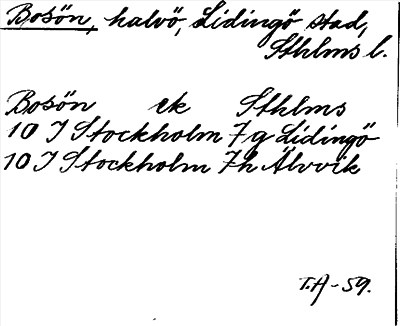 Bosön, halvö, Lidingö stad,
Sthlms l.
Bosön ek Sthlms
10 I Stockholm 7g Lidingö
10 I Stockholm 7h Älvvik
T.A-59.